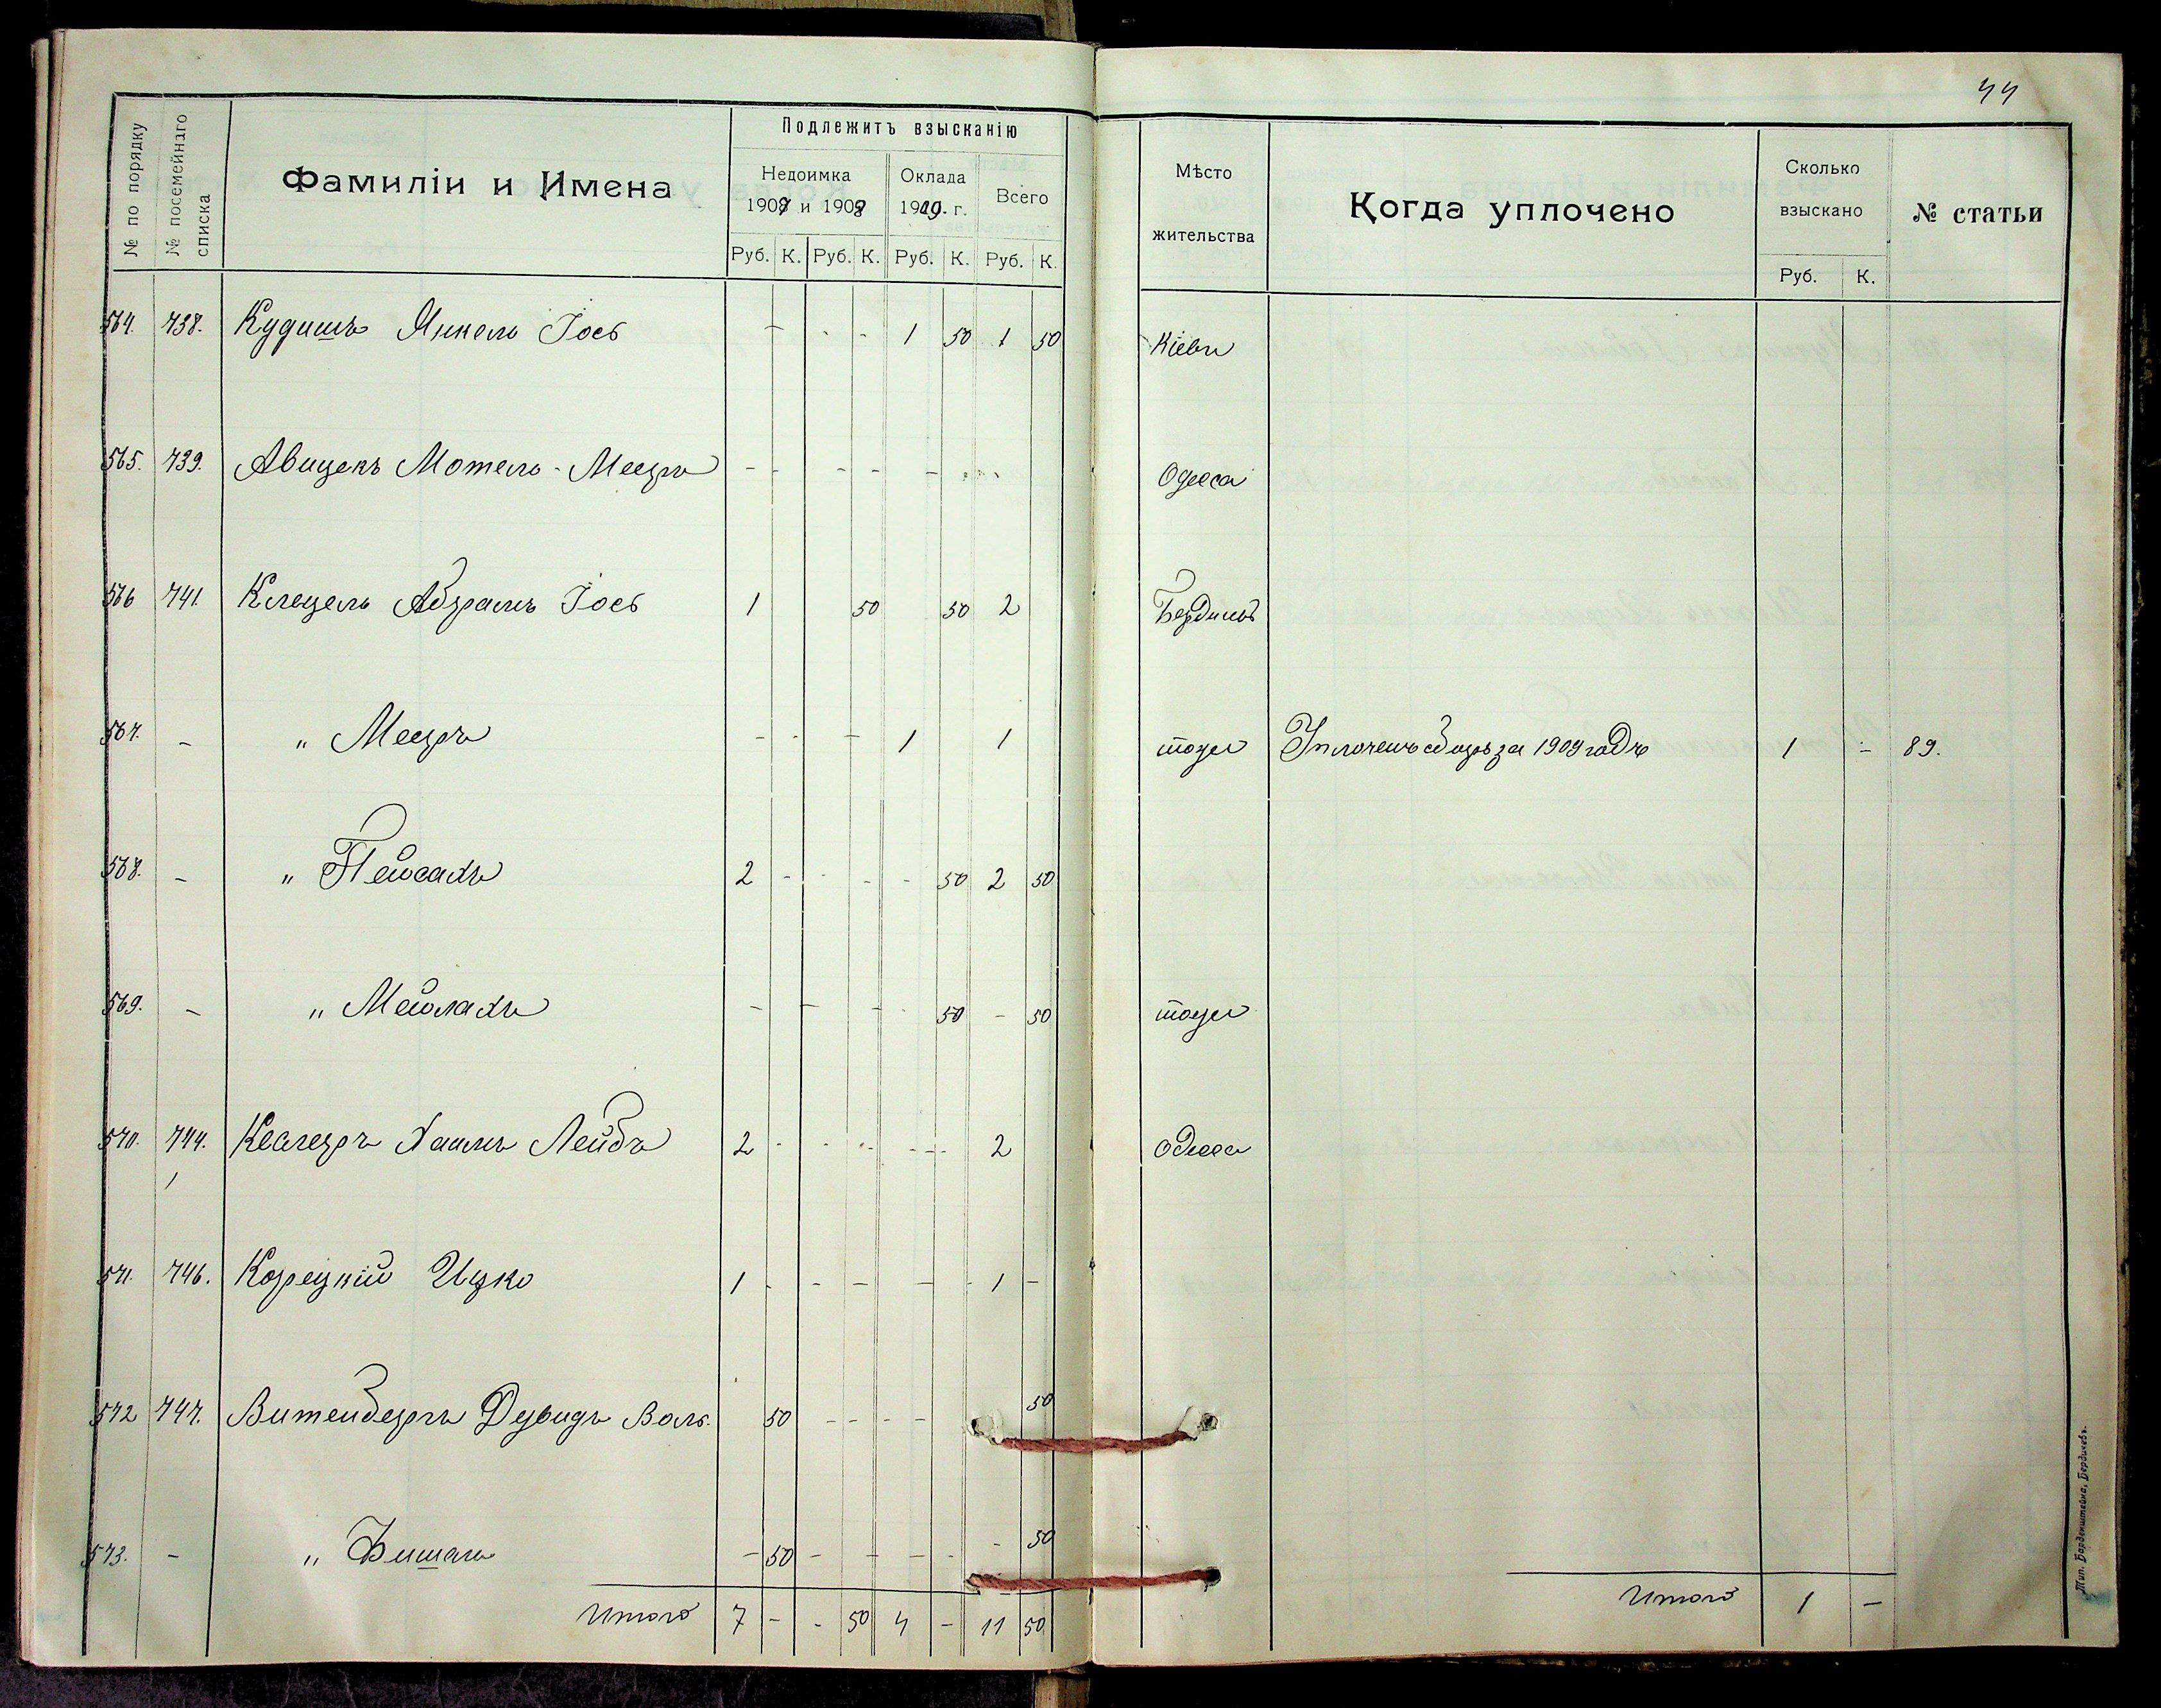 44
№ по порядку
№ посемейнаго списка
Фамиліи и Имена
Подлежитъ взысканію
Недоимка 1907 и 1908
Оклада 1909. г.
Всего
Руб. К. Руб. К. Руб. К. Руб. К.
Мѣсто жительства
Когда уплочено
Сколько взыскано
Руб. К.
№ статьи
564. 738. Кудишъ Янкель Іось - - - 1 50 1 50 Кіевъ
565. 739. Авицекъ Мотель-Мееръ - - - - - Одесса
566 741. Клецель Абрамъ Іось 1 50 50 2 Бердичъ
567. - " Мееръ - - - 1 1 тоже Уплоченъ сборъ за 1909 годъ 1 - 89.
568. - " Пейсахъ 2 - - - - 50 2 50
569. - " Мейлахъ - - - - 50 - 50 тоже
570. 744. Келлеръ Хаимъ Лейбъ 2 - - - - - 2 Одесса
1
571. 746. Корецкій Ицко 1 - - - - - 1 -
572 747. Витенбергъ Дувидъ Воль. 50 - - - - 50
573. - " Фишель - 50 - - - - - - 50
Итого 7 - - 50 4 - 11 50
Итого 1 -
Тип. Барденштейна, Бердичевъ.